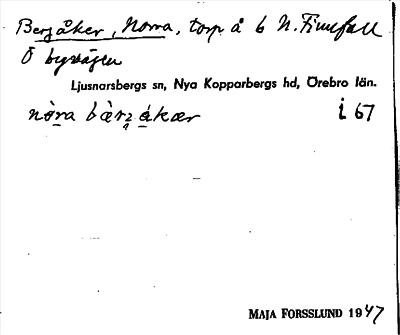 Bergåker, Norra, torp å 6 N. Finnfall
Ö byvägen
Ljusnarsbergs sn, Nya Kopparbergs hd, Örebro län.
nòra bærʒ ákær i 67
MAJA FORSSLUND 1947